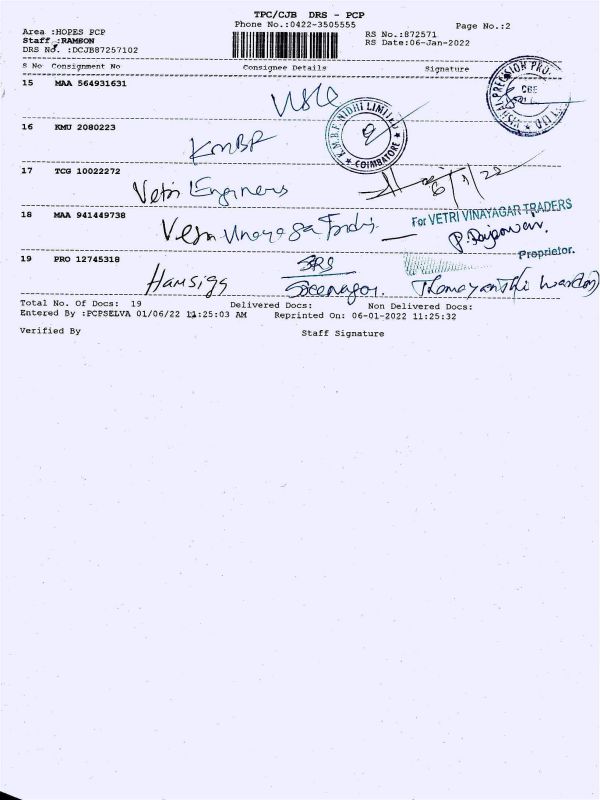 TPC/CJB DRS - PCP
Phone No.:0422-3505555
Page No.:2
Area :HOPES PCP
RS No.:872571
Staff :RAMBON
RS Date:06-Jan-2022
DRS No. :DCJB87257102
S No Consignment No Consignee Details Signature
15 MAA 564931631
16 KMU 2080223
KMBF
K.M.B.F. NIDHI LIMITED
★ COIMBATORE ★
17 TCG 10022272
Vetri Engineers
6/1/22
18 MAA 941449738
For VETRI VINAYAGAR TRADERS
Proprietor.
19 PRO 12745318
SRS
Total No. Of Docs: 19 Delivered Docs: Non Delivered Docs:
Entered By :PCPSELVA 01/06/22 11:25:03 AM Reprinted On: 06-01-2022 11:25:32
Verified By Staff Signature